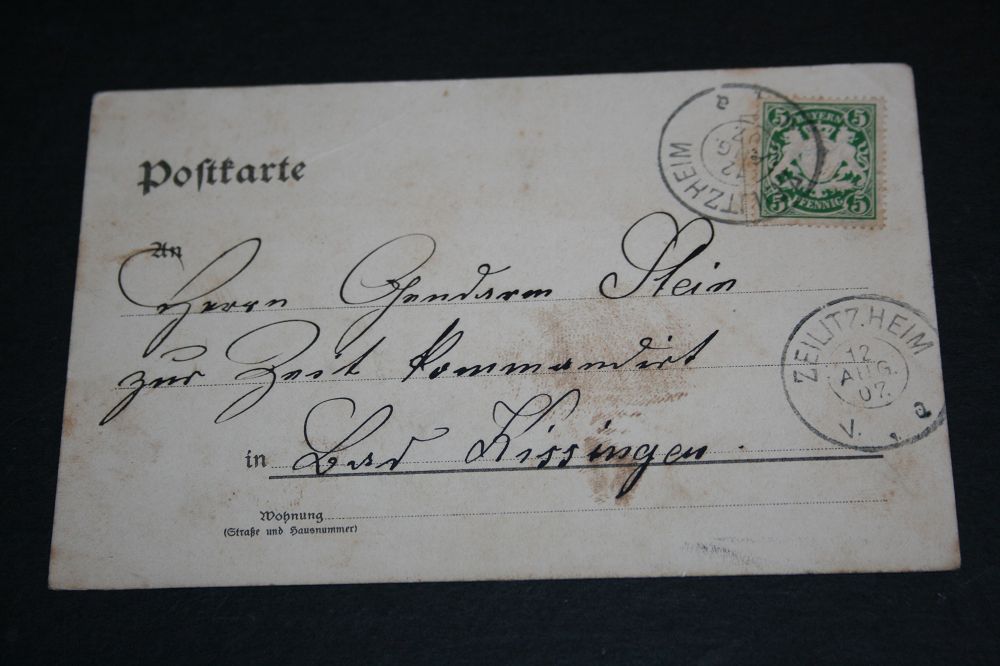 Postkarte
5 BAYERN 5
5 PFENNIG 5
ZEILITZHEIM
An
Herrn Gendarm Stein
zur Zeit kommandirt
in Bad Kissingen
ZEILITZHEIM
12
AUG.
07.
V. a
Wohnung
(Straße und Hausnummer)